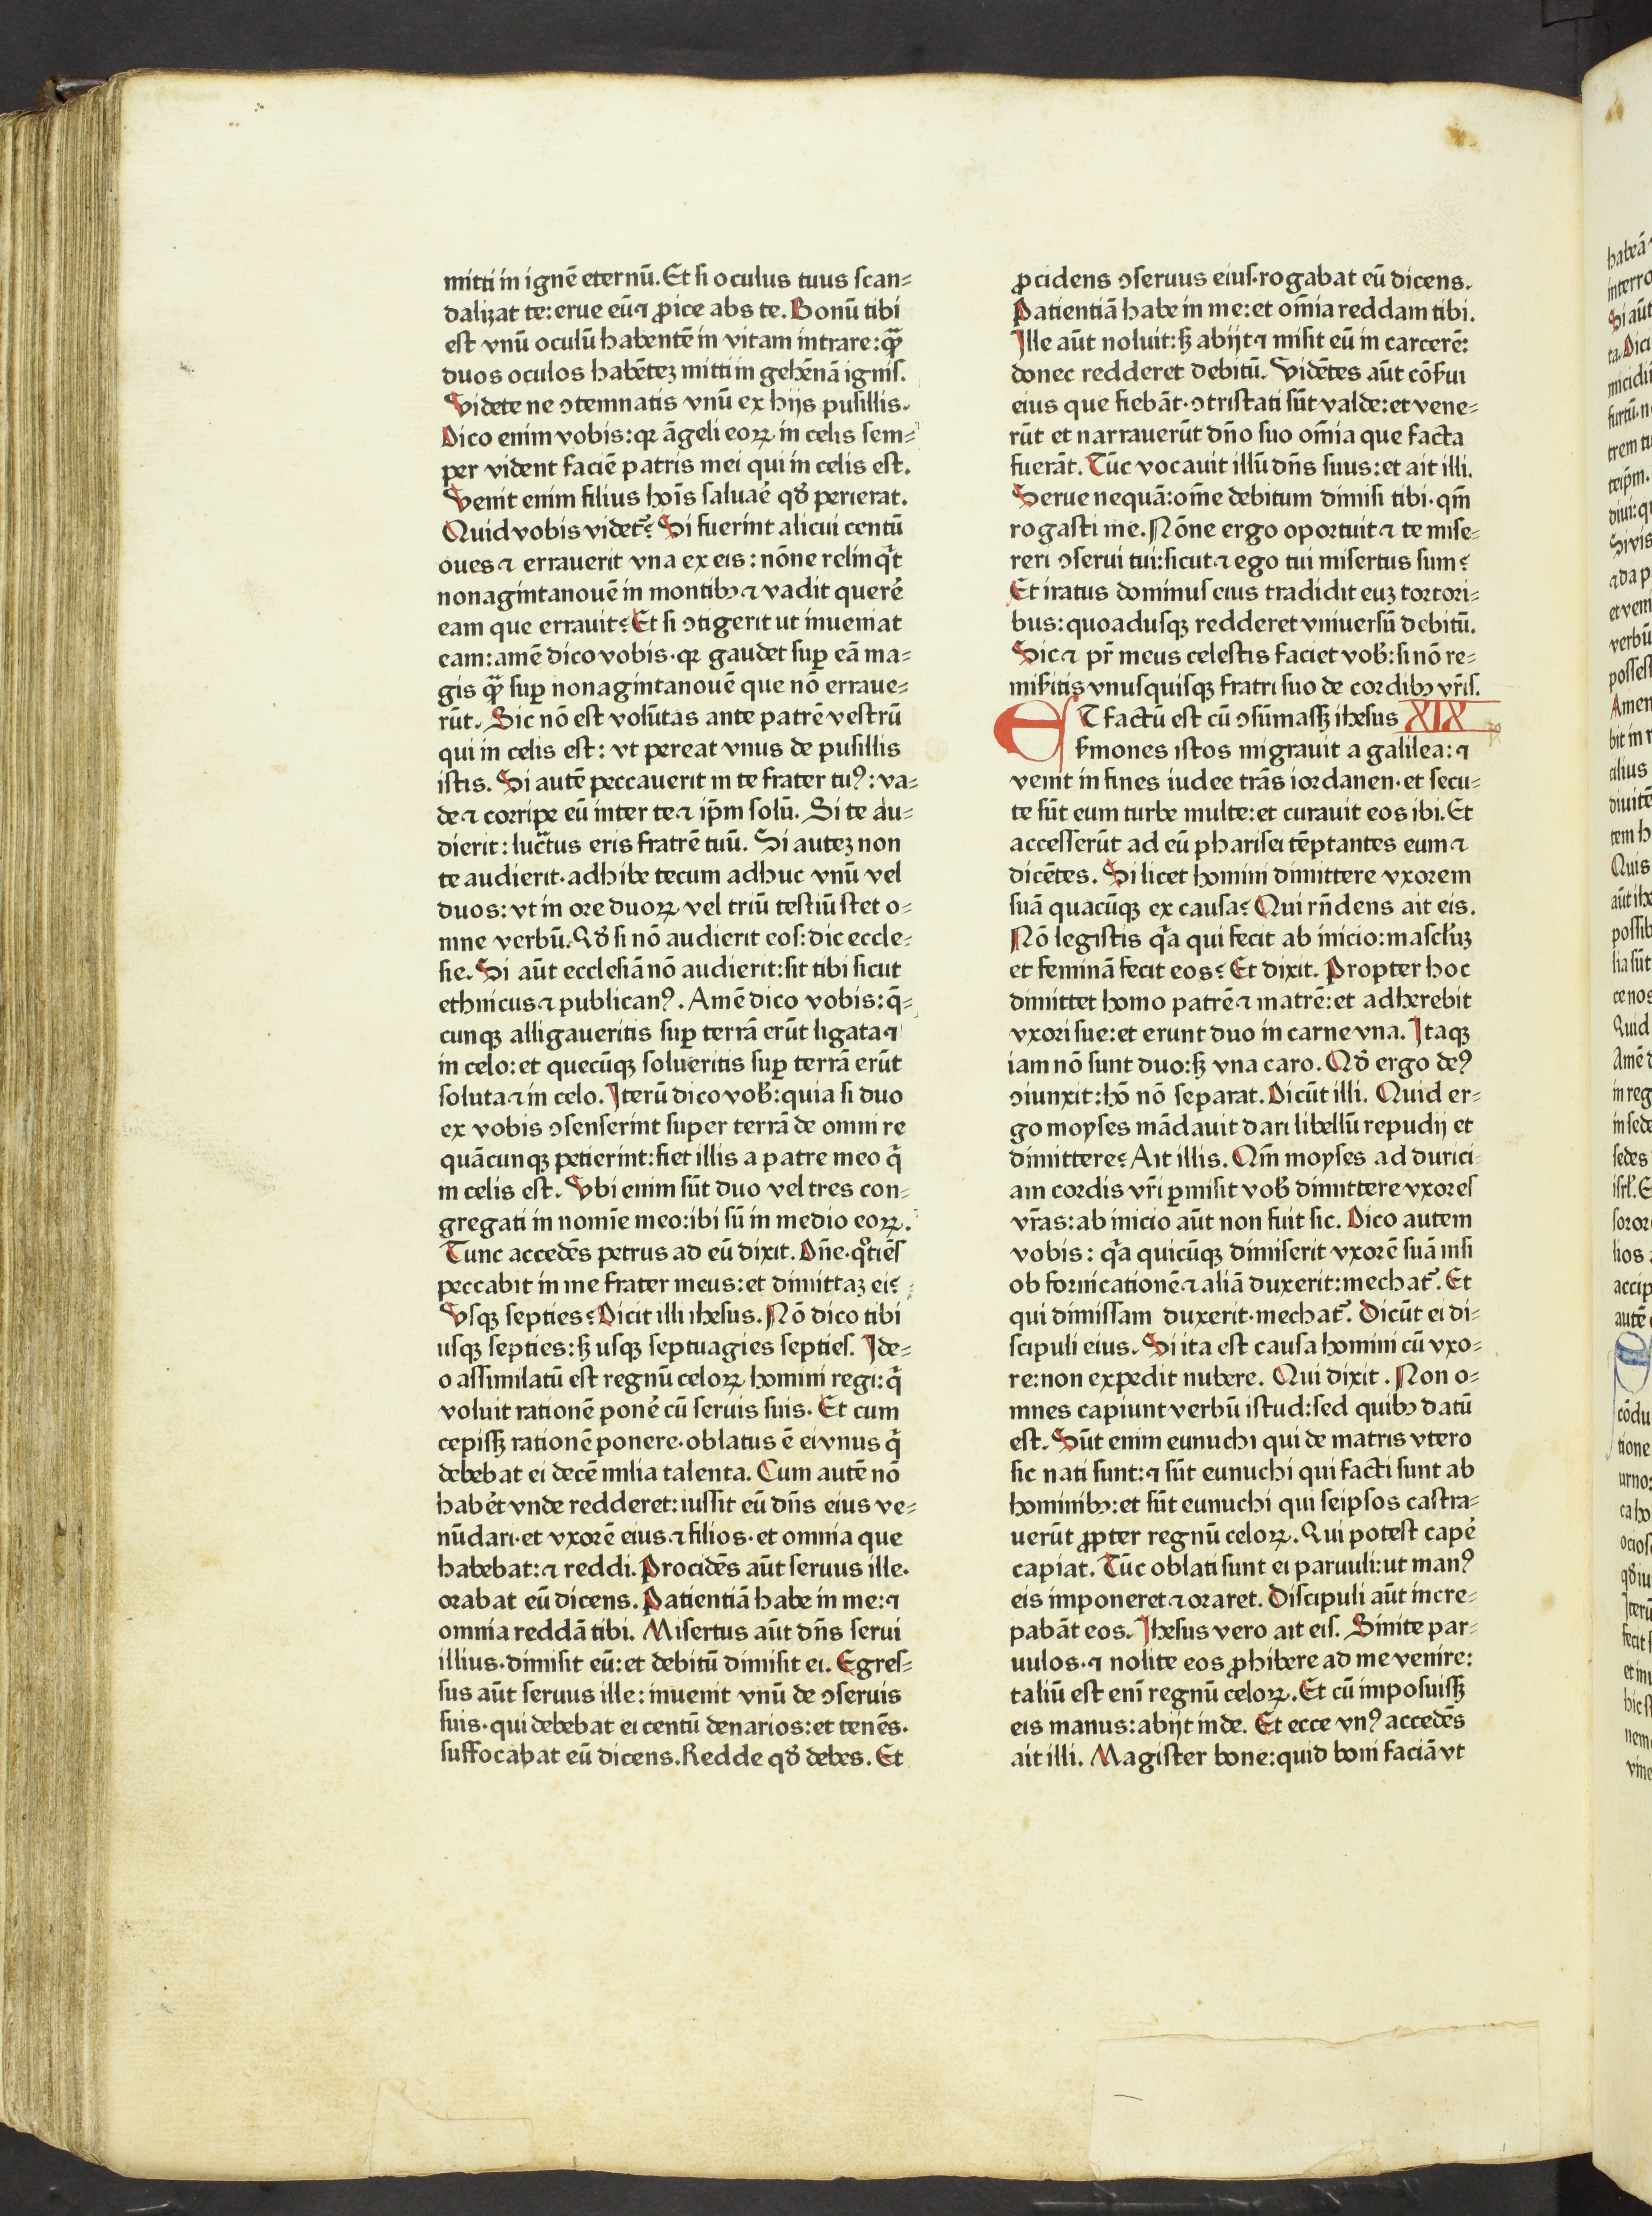 mitti in ignē eternū. Et si oculus tuus scan⸗
dalizat te: erue eū ⁊ ꝓice abs te. Bonū tibi
est vnū oculū habentē in vitam intrare: qꝫ̄
duos oculos habētez mitti in gehēnā ignis.
Videte ne ↄtemnatis vnū ex hijs pusillis.
Dico enim vobis: qr āgeli eoꝝ in celis sem⸗
per vident faciē patris mei qui in celis est.
Venit enim filius hoīs saluaē qđ perierat.
Quid vobis videt᷑? Si fuerint alicui centū
oues ⁊ errauerit vna ex eis: nōne relinq̄t
nonagintanouē in montibꝰ ⁊ vadit querē
eam que errauit? Et si ↄtigerit ut inueniat
eam: amē dico vobis. qr gaudet suꝑ eā ma⸗
gis qꝫ̄ suꝑ nonagintanouē que nō erraue⸗
rūt. Sic nō est volūtas ante patrē vestrū
qui in celis est: vt pereat vnus de pusillis
istis. Si autē peccauerit in te frater tuꝰ: va⸗
de ⁊ corripe eū inter te ⁊ ip̄m solū. Si te au⸗
dierit: luc̄tus eris fratrē tuū. Si autez non
te audierit. adhibe tecum adhuc vnū vel
duos: vt in ore duoꝝ vel triū testiū stet o⸗
mne verbū. Qđ si nō audierit eos: dic eccle⸗
sie. Si aūt ecclesiā nō audierit: sit tibi sicut
ethnicus ⁊ publicanꝰ. Amē dico vobis: q̄⸗
cunqꝫ alligaueritis suꝑ terrā erūt ligata ⁊
in celo: et quecūqꝫ solueritis suꝑ terrā erūt
soluta ⁊ in celo. Iterū dico vob̄: quia si duo
ex vobis ↄsenserint super terrā de omni re
quācunqꝫ petierint: fiet illis a patre meo q̄
in celis est. Vbi enim sūt duo vel tres con⸗
gregati in nomīe meo: ibi sū in medio eoꝝ.
Tunc accedēs petrus ad eū dixit. Dn̄e. qͦtiēs
peccabit in me frater meus: et dimittaz ei?
Vsqꝫ septies? Dicit illi ihesus. Nō dico tibi
usqꝫ septies: sꝫ usqꝫ septuagies septies. Ide⸗
o assimilatū est regnū celoꝝ homini regi: q̄
voluit rationē ponē cū seruis suis. Et cum
cepissꝫ rationē ponere. oblatus ē ei vnus q̄
debebat ei decē milia talenta. Cum autē nō
habēt vnde redderet: iussit eū dn̄s eius ve⸗
nūdari. et vxorē eius ⁊ filios. et omnia que
habebat: ⁊ reddi. Procidēs aūt seruus ille.
orabat eū dicens. Patientiā habe in me: ⁊
omnia reddā tibi. Misertus aūt dn̄s serui
illius. dimisit eū: et debitū dimisit ei. Egres⸗
sus aūt seruus ille: inuenit vnū de ↄseruis
suis. qui debebat ei centū denarios: et tenēs.
suffocabat eū dicens. Redde qđ debes. Et
ꝓcidens ↄseruus eius. rogabat eū dicens.
Patientiā habe in me: et om̄ia reddam tibi.
Ille aūt noluit: sꝫ abijt ⁊ misit eū in carcerē:
donec redderet debitū. Vidētes aūt cōẜui
eius que fiebāt. ↄtristati sūt valde: et vene⸗
rūt et narrauerūt dn̄o suo om̄ia que facta
fuerāt. Tūc vocauit illū dn̄s suus: et ait illi.
Serue nequā: om̄e debitum dimisi tibi. qm̄
rogasti me. Nōne ergo oportuit ⁊ te mise⸗
reri ↄserui tui: sicut ⁊ ego tui misertus sum?
Et iratus dominus eius tradidit euz tortori⸗
bus: quoadusqꝫ redderet vniuersū debitū.
Sic ⁊ pr̄ meus celestis faciet vob̄: si nō re⸗
miẜitis vnusquisqꝫ fratri suo de cordibꝰ vr̄is.
ET factū est cū ↄsūmassꝫ ihesus XIX
ẜmones istos migrauit a galilea: ⁊
venit in fines iudee trās iordanen. et secu⸗
te sūt eum turbe multe: et curauit eos ibi. Et
accesserūt ad eū pharisei tēptantes eum ⁊
dicētes. Si licet homini dimittere vxorem
suā quacūqꝫ ex causa? Qui rn̄dens ait eis.
Nō legistis qͣa qui fecit ab inicio: mascl̄uz
et feminā fecit eos? Et dixit. Propter hoc
dimittet homo patrē ⁊ matrē: et adherebit
vxori sue: et erunt duo in carne vna. Itaqꝫ
iam nō sunt duo: sꝫ vna caro. Qđ ergo deꝰ
ↄiunxit: hō nō separat. Dicūt illi. Quid er⸗
go moyses mādauit dari libellū repudij et
dimittere? Ait illis. Qm̄ moyses ad durici⸗
am cordis vr̄i ꝑmisit vob̄ dimittere vxores
vr̄as: ab inicio aūt non fuit sic. Dico autem
vobis: qͣa quicūqꝫ dimiserit vxorē suā nisi
ob fornicationē ⁊ aliā duxerit: mechat᷑. Et
qui dimissam duxerit. mechat᷑. Dicūt ei di⸗
scipuli eius. Si ita est causa homini cū vxo⸗
re: non expedit nubere. Qui dixit. Non o⸗
mnes capiunt verbū istud: sed quibꝰ datū
est. Sūt enim eunuchi qui de matris vtero
sic nati sunt: ⁊ sūt eunuchi qui facti sunt ab
hominibꝰ: et sūt eunuchi qui seipsos castra⸗
uerūt ꝓpter regnū celoꝝ. Qui potest capē
capiat. Tūc oblati sunt ei paruuli: ut manꝰ
eis imponeret ⁊ oraret. Discipuli aūt incre⸗
pabāt eos. Ihesus vero ait eis. Sinite par⸗
uulos. ⁊ nolite eos ꝓhibere ad me venire:
taliū est enī regnū celoꝝ. Et cū imposuissꝫ
eis manus: abijt inde. Et ecce vnꝰ accedēs
ait illi. Magister bone: quid boni faciā vt